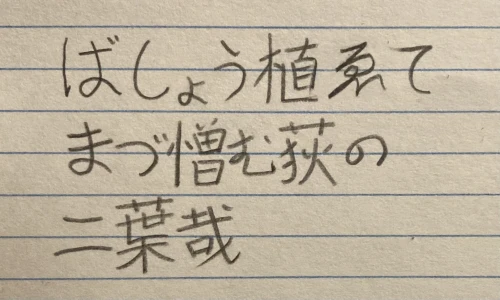 ばしょう植ゑて
まづ憎む荻の
二葉哉